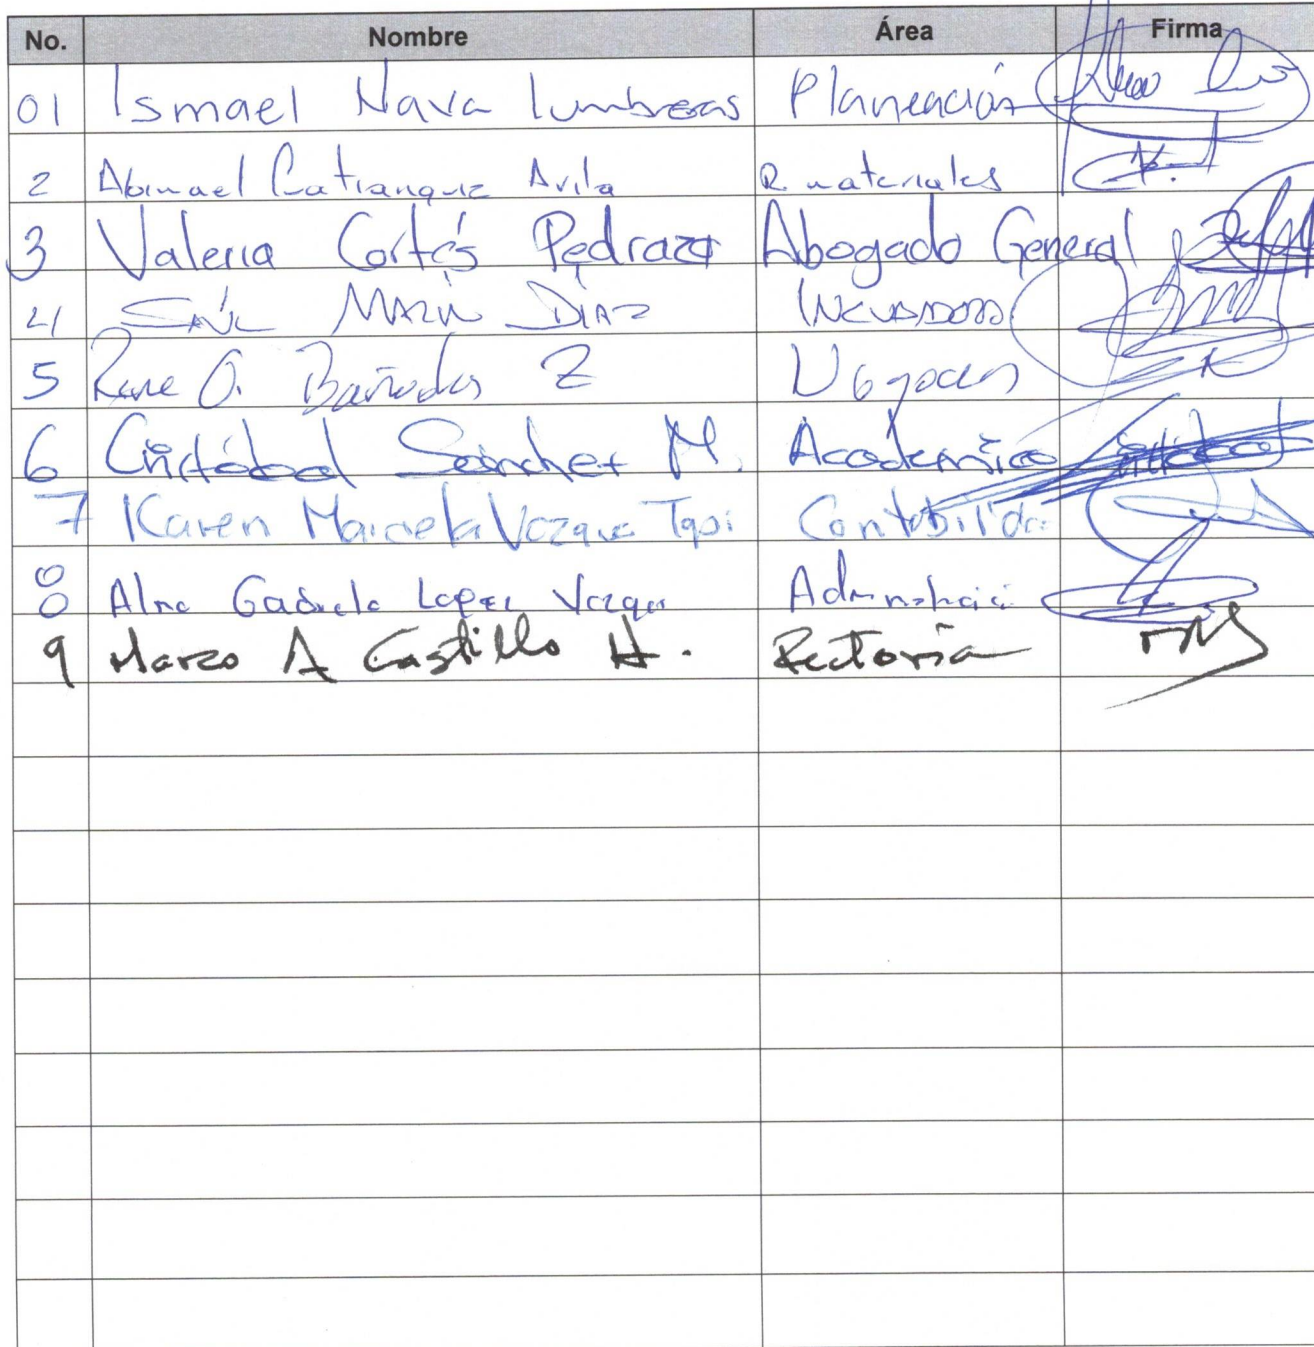 No. Nombre Área Firma
01 Ismael Nava lumbreras Planeación
2 Abimael Catranquiz Avila R materiales
3 Valeria Cortés Pedraza Abogado General
4 SAÚL MARIN DIAZ INCUBADORA
5 Rene O. Bañuelos Z
6 Cristóbal Sánchez M. Académico
7 Karen Mariela Vazque Tapi Contabilida
8 Alma Gabriela Lopez Vazque
9 Marco A Castillo H. Rectoria